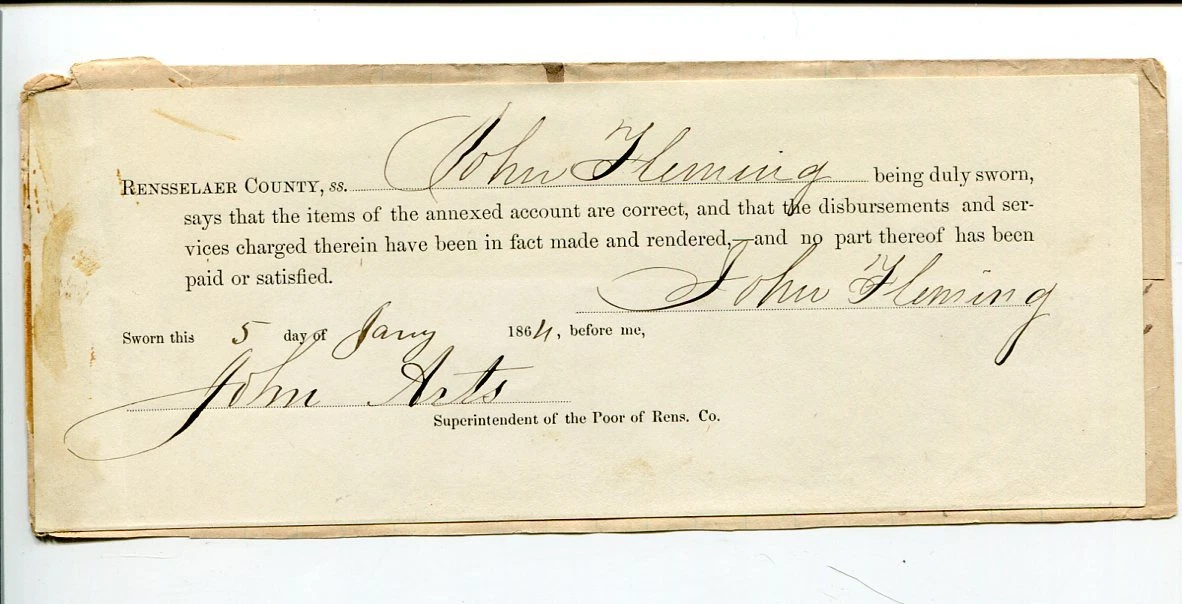 RENSSELAER COUNTY, ss. John Fleming being duly sworn,
says that the items of the annexed account are correct, and that the disbursements and ser-
vices charged therein have been in fact made and rendered,—and no part thereof has been
paid or satisfied.
John Fleming
Sworn this 5 day of Jany 1864, before me,
John Arts
Superintendent of the Poor of Rens. Co.